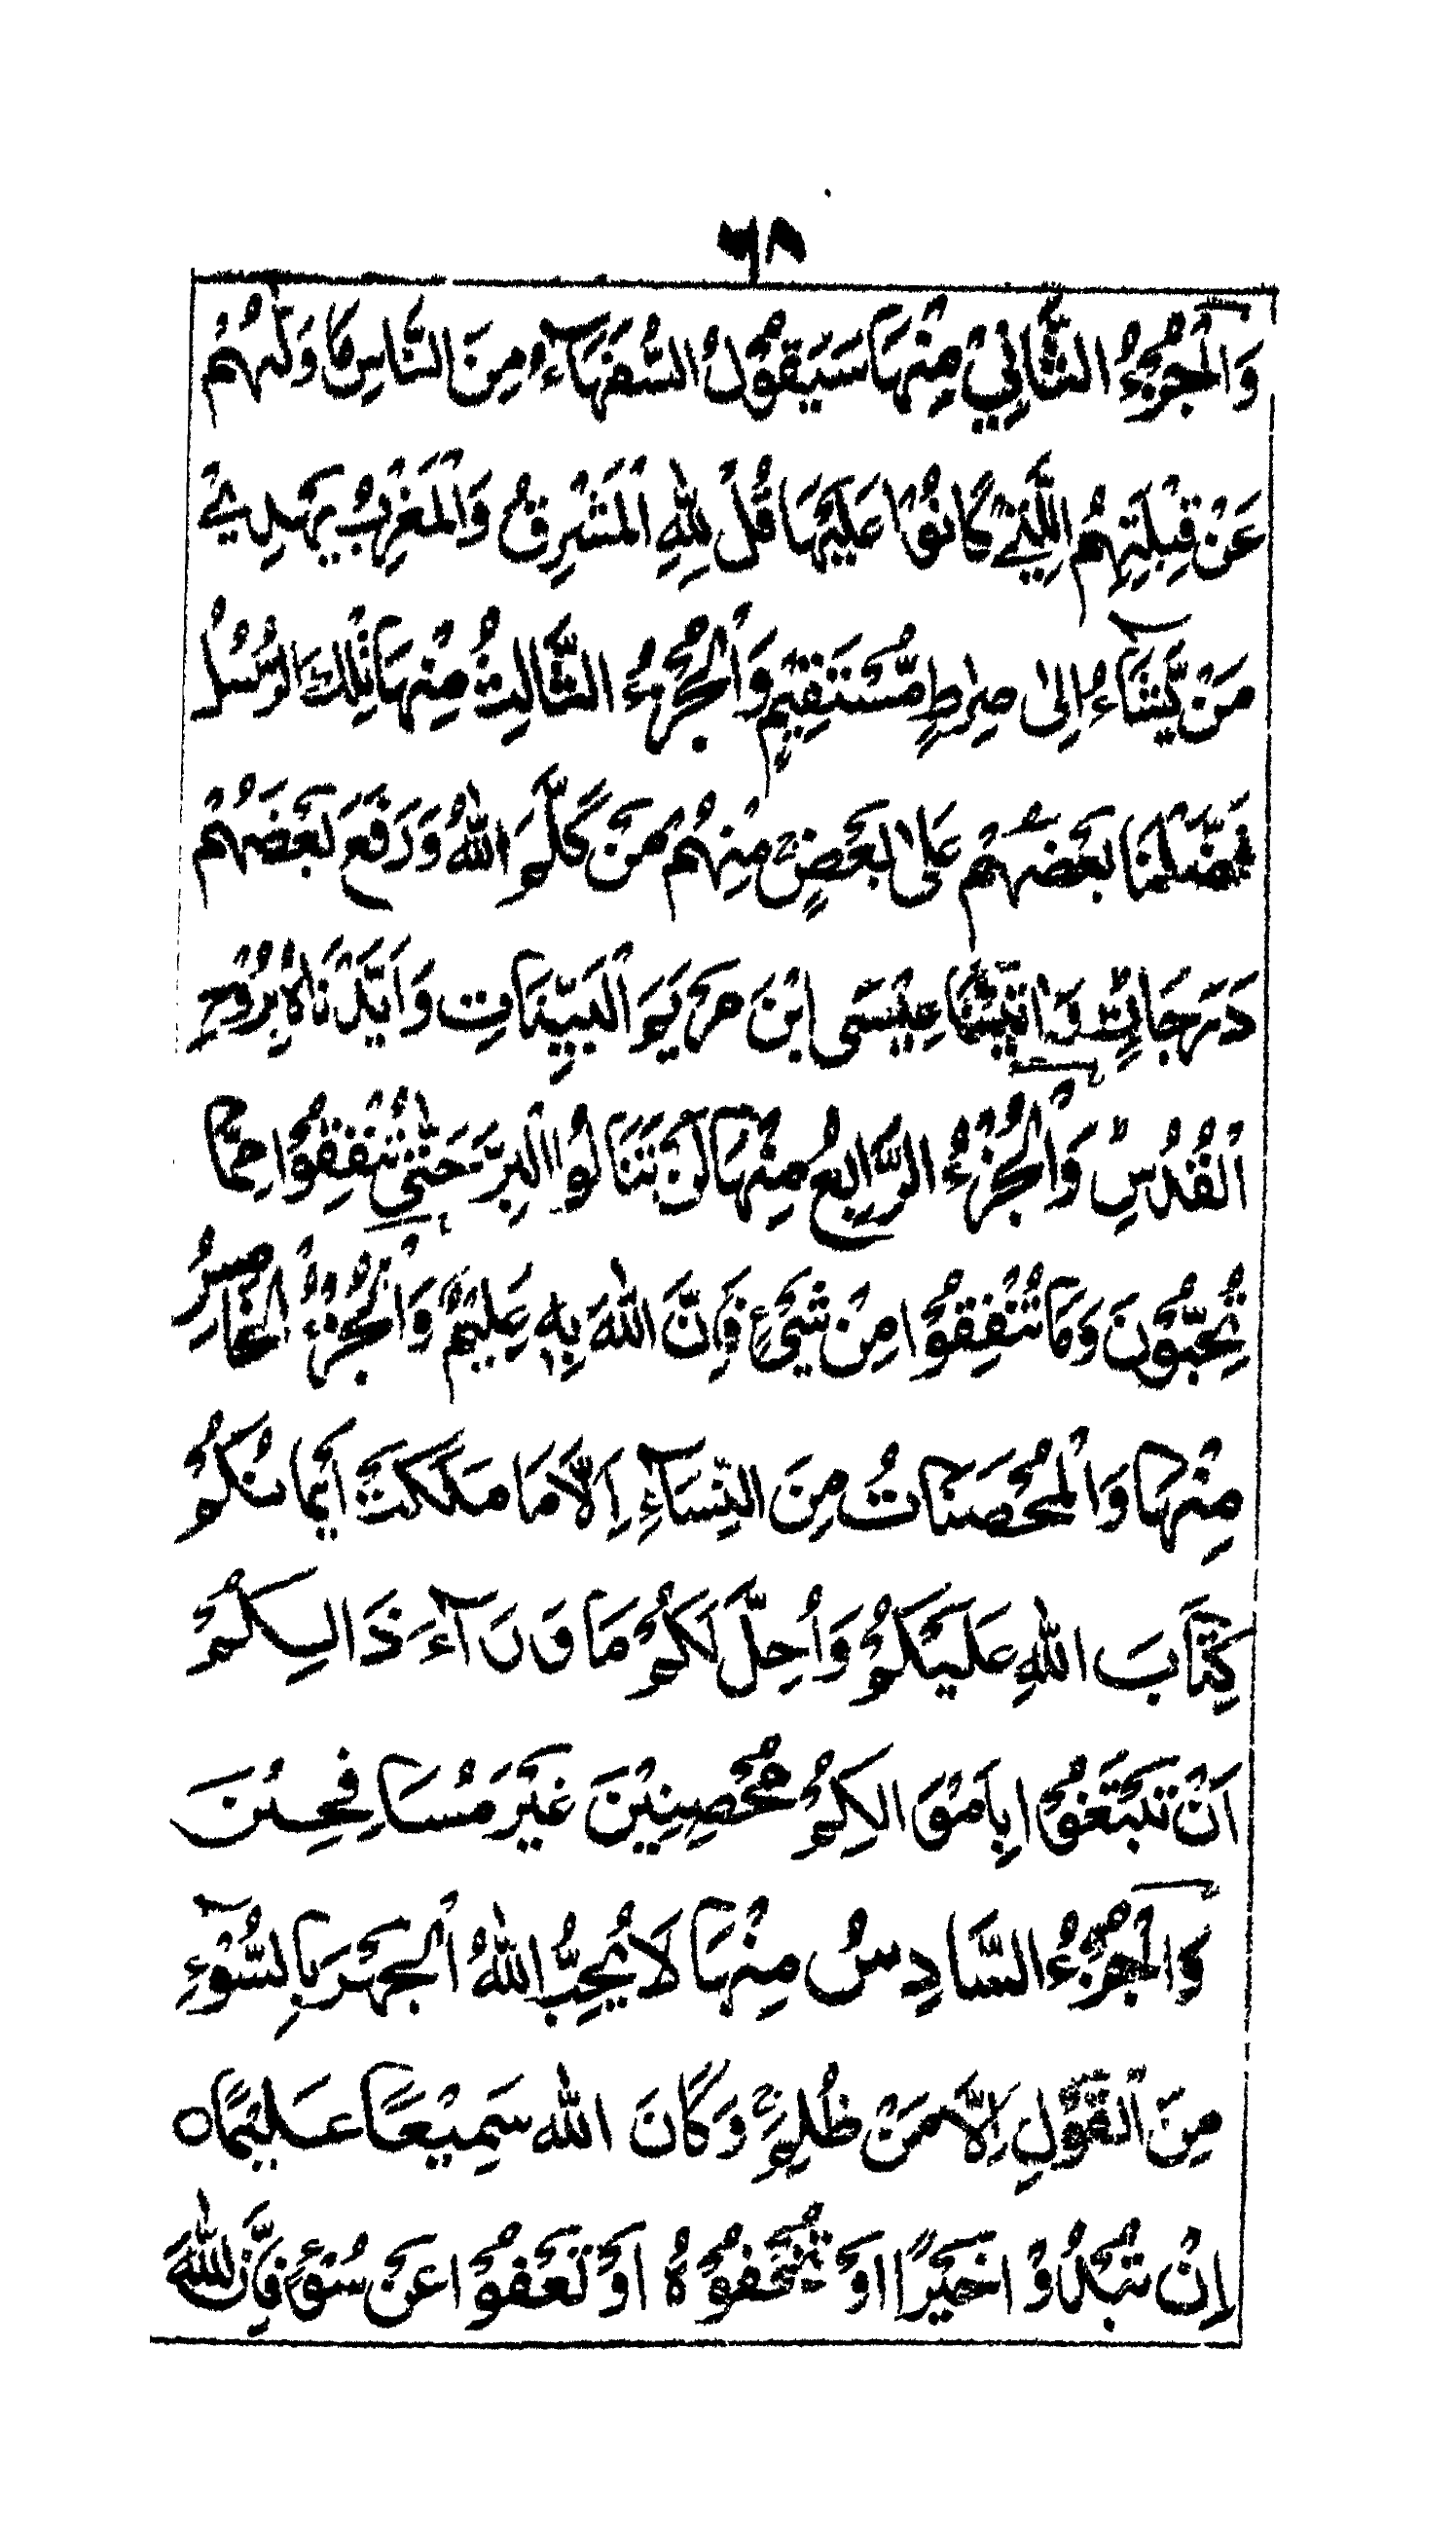 ٦٨
وَالْجُزْءُ الثَّانِيْ مِنْهَا سَيَقُوْلُ السُّفَهَآءُ مِنَ النَّاسِ مَا وَلّٰهُمْ
عَنْ قِبْلَتِهِمُ الَّتِيْ كَانُوْا عَلَيْهَا قُلْ لِلّٰهِ الْمَشْرِقُ وَالْمَغْرِبُ يَهْدِيْ
مَنْ يَّشَآءُ اِلىٰ صِرٰطٍ مُّسْتَقِيْمٍ وَالْجُزْءُ الثَّالِثُ مِنْهَا تِلْكَ الرُّسُلُ
فَضَّلْنَا بَعْضَهُمْ عَلىٰ بَعْضٍ مِنْهُمْ مَنْ كَلَّمَ اللّٰهُ وَرَفَعَ بَعْضَهُمْ
دَرَجَاتٍ وَاٰتَيْنَا عِيْسَى ابْنَ مَرْيَمَ الْبَيِّنَاتِ وَاَيَّدْنَاهُ بِرُوْحِ
الْقُدُسِ وَالْجُزْءُ الرَّابِعُ مِنْهَا لَنْ تَنَالُوا الْبِرَّ حَتّٰى تُنْفِقُوْا مِمَّا
تُحِبُّوْنَ وَمَا تُنْفِقُوْا مِنْ شَيْءٍ فَاِنَّ اللّٰهَ بِهٖ عَلِيْمٌ وَالْجُزْءُ الْخَامِسُ
مِنْهَا وَالْمُحْصَنَاتُ مِنَ النِّسَآءِ اِلَّا مَا مَلَكَتْ اَيْمَانُكُمْ
كِتَابَ اللّٰهِ عَلَيْكُمْ وَاُحِلَّ لَكُمْ مَا وَرَآءَ ذَالِكُمْ
اَنْ تَبْتَغُوْا بِاَمْوَالِكُمْ مُحْصِنِيْنَ غَيْرَ مُسَافِحِيْنَ
وَالْجُزْءُ السَّادِسُ مِنْهَا لَا يُحِبُّ اللّٰهُ الْجَهْرَ بِالسُّوْٓءِ
مِنَ الْقَوْلِ اِلَّا مَنْ ظُلِمَ وَكَانَ اللّٰه سَمِيْعًا عَلِيْمًا ○
اِنْ تُبْدُوْا خَيْرًا اَوْ تُخْفُوْهُ اَوْ تَعْفُوْا عَنْ سُوْءٍ فَاِنَّ اللّٰهَ